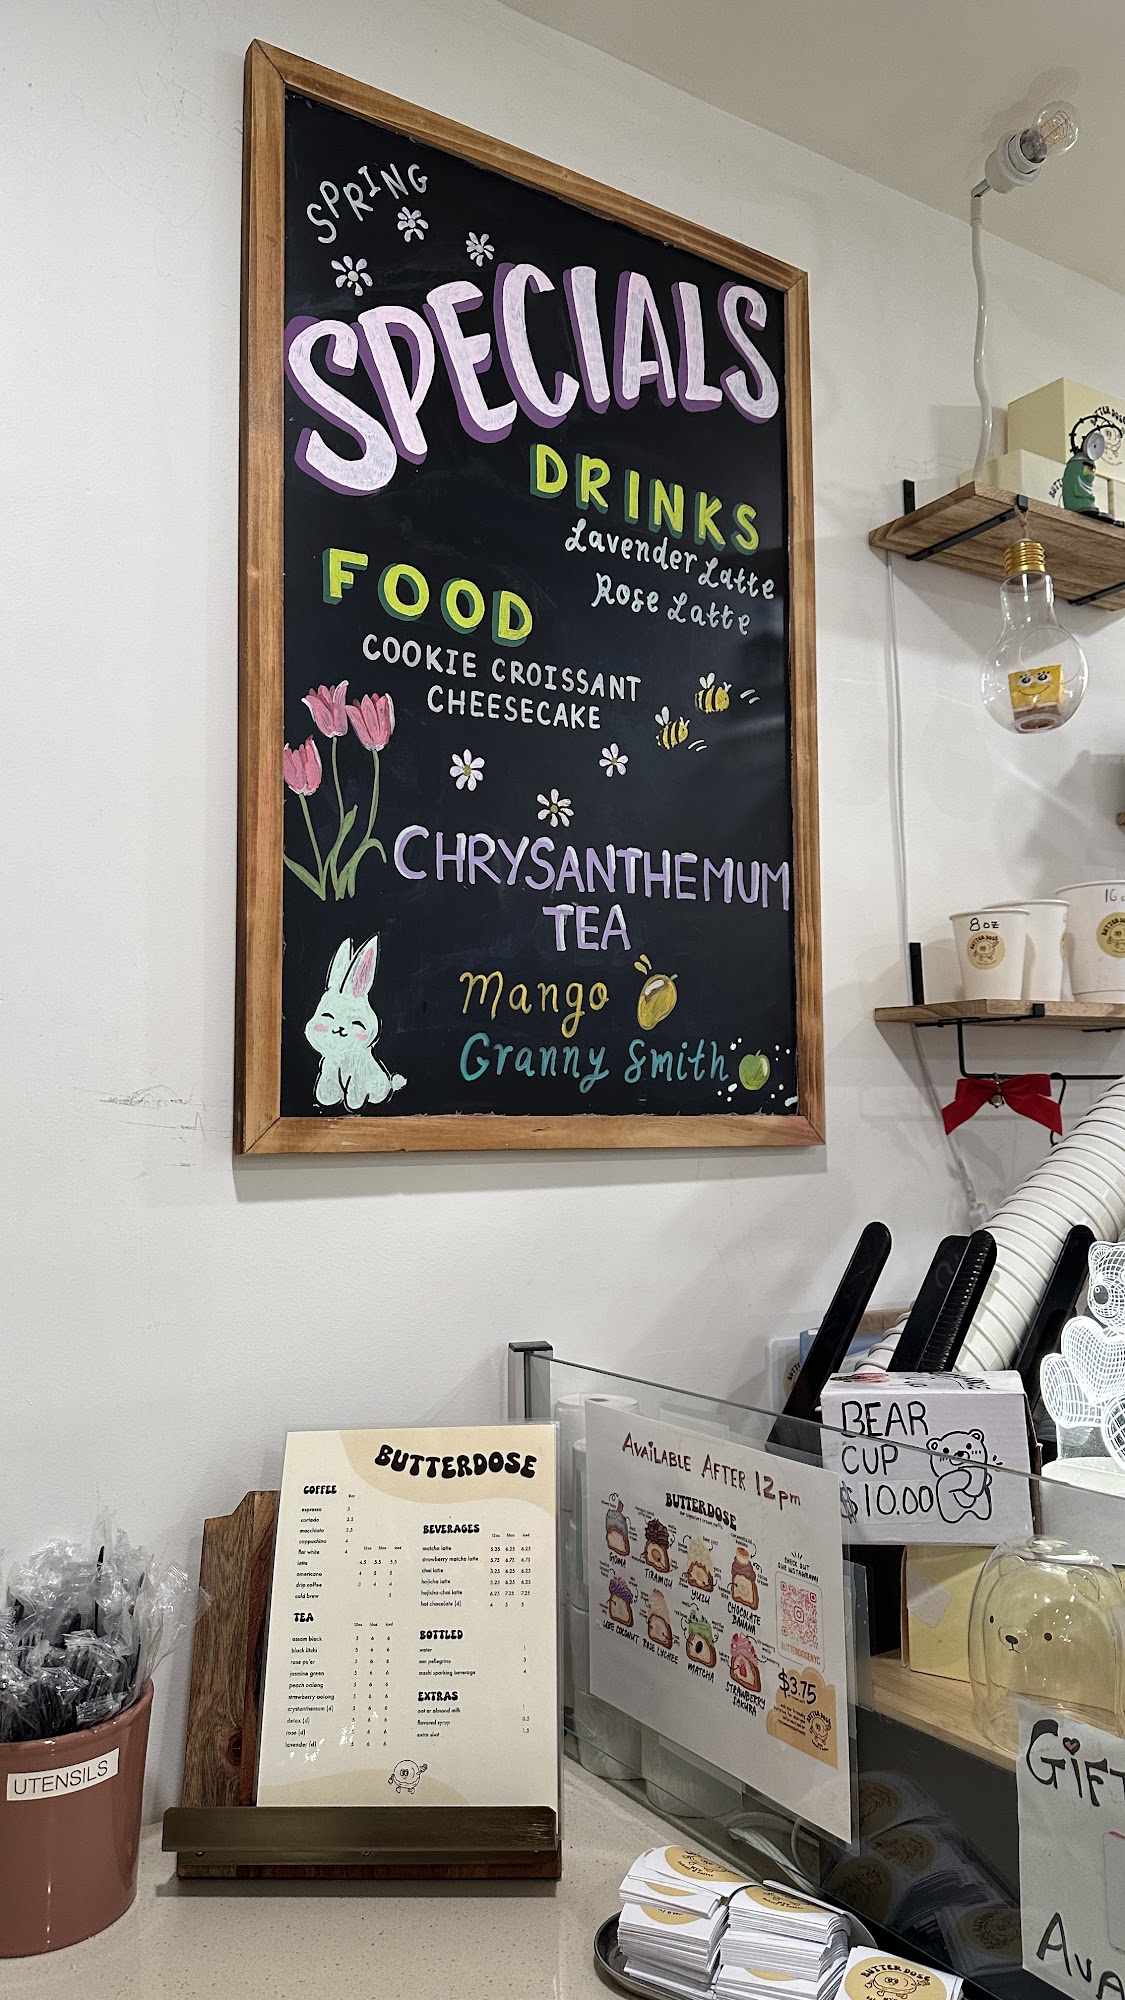 SPRING
SPECIALS
DRINKS
Lavender Latte
Rose Latte
FOOD
COOKIE CROISSANT
CHEESECAKE
CHRYSANTHEMUM
TEA
Mango
Granny Smith
8oz
BUTTERDOSE
COFFEE
8oz
espresso 3
cortado 3.5
macchiato 3.5
cappuccino 4
flat white 4
12oz 16oz iced
latte 4.5 5.5 5.5
americano 4 5 5
drip coffee 3 4 4
cold brew 5
TEA
12oz 16oz iced
assam black 5 6 6
black litchi 5 6 6
rose pu'er 5 6 6
jasmine green 5 6 6
peach oolong 5 6 6
strawberry oolong 5 6 6
crystanthemum (d) 5 6 6
detox (d) 5 6 6
rose (d) 5 6 6
lavender (d) 5 6 6
BEVERAGES
12oz 16oz iced
matcha latte 5.25 6.25 6.25
strawberry matcha latte 5.75 6.75 6.75
chai latte 5.25 6.25 6.25
hojicha latte 5.25 6.25 6.25
hojicha-chai latte 6.25 7.25 7.25
hot chocolate (d) 4 5 5
BOTTLED
water 1
san pellegrino 3
moshi sparking beverage 4
EXTRAS
oat or almond milk 1
flavored syrup 0.5
extra shot 1.5
UTENSILS
AVAILABLE AFTER 12pm
BUTTERDOSE
our signature cream puffs
GOMA
TIRAMISU
YUZU
CHOCOLATE
BANANA
UBE COCONUT
ROSE LYCHEE
MATCHA
STRAWBERRY
SAKURA
CHECK OUT
OUR INSTAGRAM!
BUTTERDOSENYC
$3.75
BEAR
CUP
$10.00
BUTTERDOSE